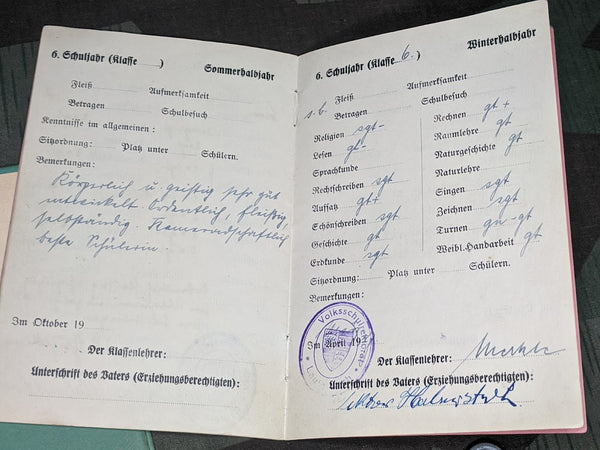 6. Schuljahr (Klasse ) Sommerhalbjahr
Fleiß Aufmerksamkeit
Betragen Schulbesuch
Kenntnisse im allgemeinen :
Sitzordnung: Platz unter Schülern.
Bemerkungen:
Körperlich u. geistig sehr gut
entwickelt. Ordentlich, fleißig,
selbständig. Kameradschaftlich
beste Schülerin.
Im Oktober 19
Der Klassenlehrer:
Unterschrift des Vaters (Erziehungsberechtigten):
6. Schuljahr (Klasse 6. ) Winterhalbjahr
s. b. Fleiß Aufmerksamkeit
Betragen Schulbesuch
Religion sgt- Rechnen gt +
Lesen gt- Raumlehre gt
Sprachkunde Naturgeschichte gt
Rechtschreiben sgt Naturlehre
Aufsatz gt+ Singen sgt
Schönschreiben sgt Zeichnen sgt
Geschichte gt Turnen gn-gt
Erdkunde sgt Weibl. Handarbeit gt
Sitzordnung: Platz unter Schülern.
Bemerkungen:
Volksschulrektorat
Im April 19
Der Klassenlehrer:
Unterschrift des Vaters (Erziehungsberechtigten):